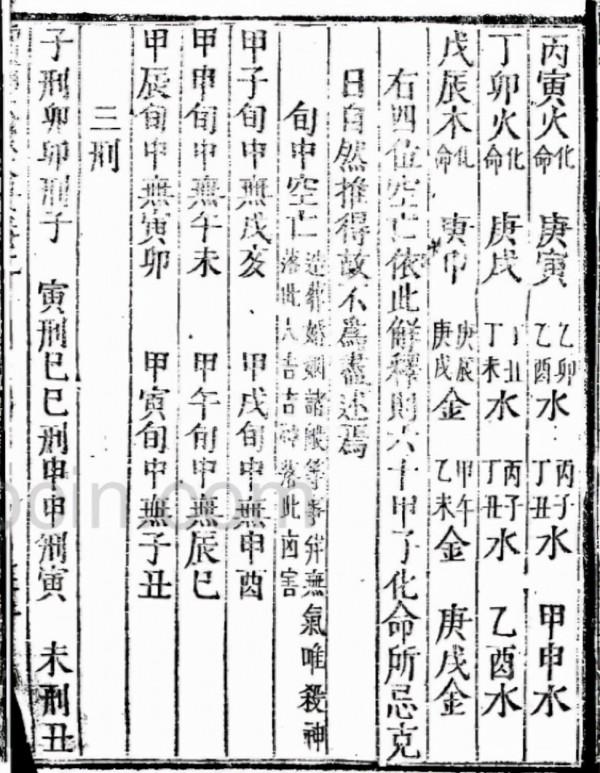 丙寅火化命 庚寅 乙卯乙酉水 丙子丁丑水 甲申水
丁卯火化命 庚戌 丁丑丁未水 丙子丁丑水 乙酉水
戊辰木化命 庚申 庚辰庚戌金 甲午乙未金 庚戌金
右四位空亡依此解釋則六十甲子化命所忌克
日自然推得故不為盡述焉
旬中空亡 造葬婚姻諸般等事併無氣唯殺神落此人吉吉神落此凶害
甲子旬中無戌亥 甲戌旬中無申酉
甲申旬中無午未 甲午旬中無辰巳
甲辰旬中無寅卯 甲寅旬中無子丑
三刑
子刑卯卯刑子 寅刑巳巳刑申申刑寅 未刑丑